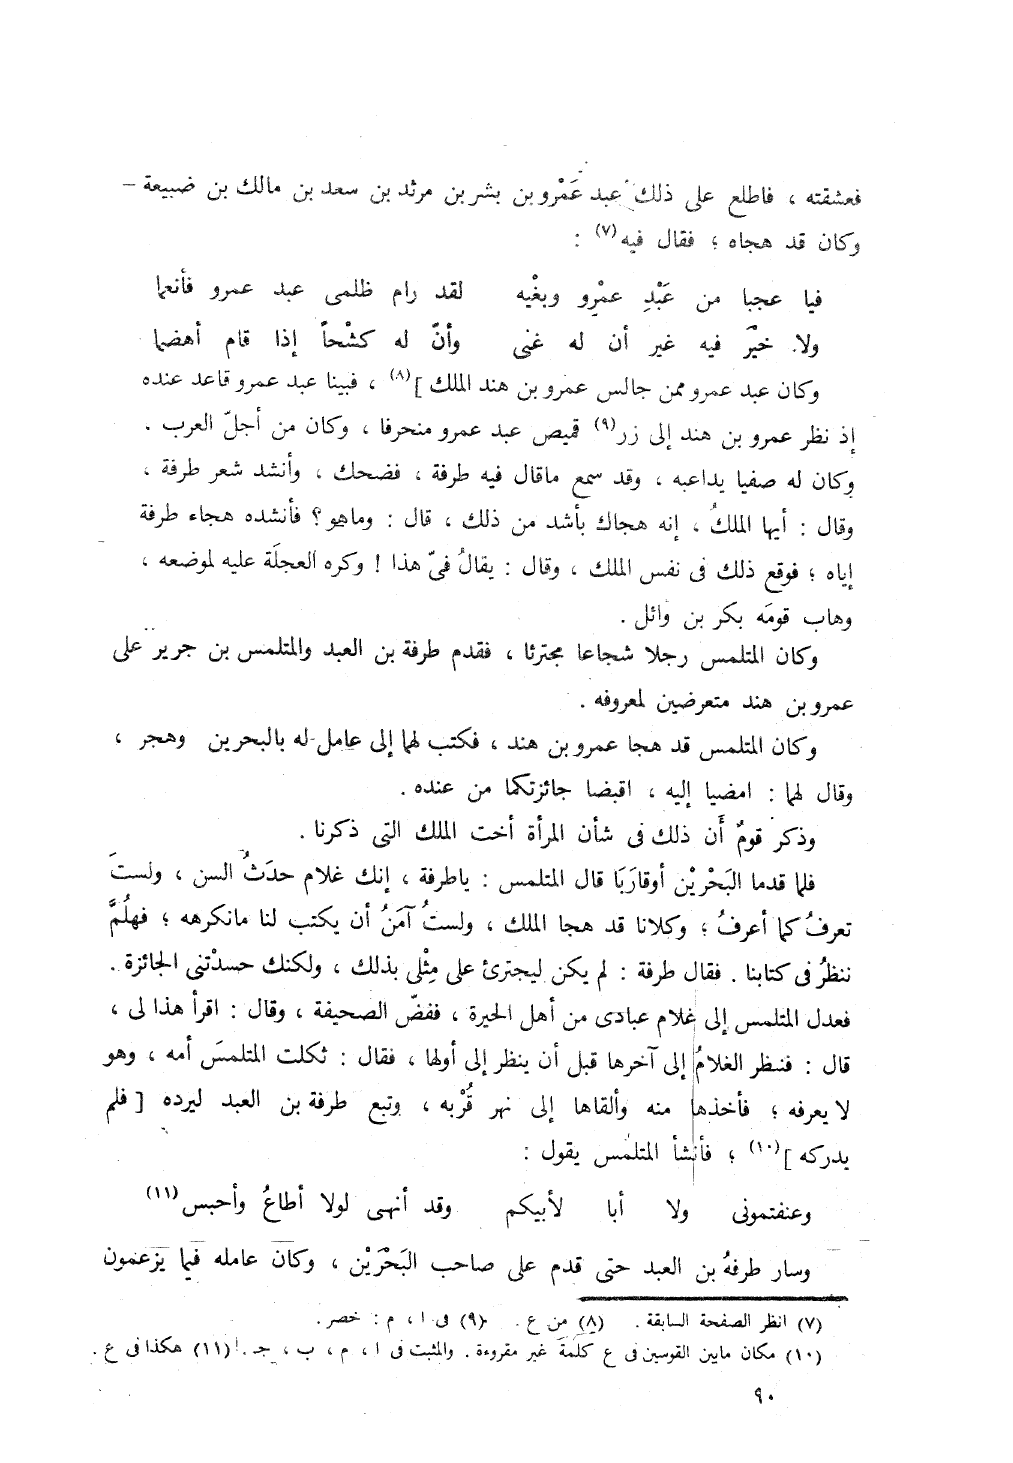 فعشقته ، فاطلع على ذلك عبد عَمْرو بن بشر بن مرثد بن سعد بن مالك بن ضبيعة –
وكان قد هجاه ؛ فقال فيه (٧) :
فيا عجبا من عَبْدِ عمْرٍو وبغْيه لقد رام ظلمى عبد عمرو فأنعما
ولا خيْرَ فيه غير أن له غنى وأنّ له كشْحاً إذا قام أهضما
وكان عبد عمرو ممن جالس عمرو بن هند الملك ](٨) ، فبينا عبد عمرو قاعد عنده
إذ نظر عمرو بن هند إلى زر(٩) قميص عبد عمرو منحرفا ، وكان من أجلّ العرب .
وكان له صفيا يداعبه ، وقد سمع ماقال فيه طرفة ، فضحك ، وأنشد شعر طرفة ،
وقال : أيها الملكُ ، إنه هجاك بأشد من ذلك ، قال : وماهو ؟ فأنشده هجاء طرفة
إياه ؛ فوقع ذلك فى نفس الملك ، وقال : يقالُ فىّ هذا ! وكره العجلَة عليه لموضعه ،
وهاب قومَه بكر بن وائل .
وكان المتلمس رجلا شجاعا مجترئا ، فقدم طرفة بن العبد والمتلمس بن جرير على
عمرو بن هند متعرضين لمعروفه .
وكان المتلمس قد هجا عمرو بن هند ، فكتب لهما إلى عامل له بالبحرين وهجر ،
وقال لهما : امضيا إليه ، اقبضا جائزتكما من عنده .
وذكر قومٌ أَن ذلك فى شأن المرأة أخت الملك التى ذكرنا .
فلما قدما البَحْرَيْن أوقارَبَا قال المتلمس : ياطرفة ، إنك غلام حدَثُ السن ، ولستَ
تعرفُ كما أعرفُ ؛ وكلانا قد هجا الملك ، ولستُ آمَنُ أن يكتب لنا مانكرهه ؛ فهلُمَّ
ننظرُ فى كتابنا . فقال طرفة : لم يكن ليجترئ على مِثْلى بذلك ، ولكنك حسدْتنى الجائزة .
فعدل المتلمس إلى غلام عبادى من أهل الحيرة ، ففضّ الصحيفة ، وقال : اقرأ هذا لى ،
قال : فنظر الغلامُ إلى آخرها قبل أن ينظر إلى أولها ، فقال : ثكلت المتلمسَ أمه ، وهو
لا يعرفه ؛ فأخذها منه وألقاها إلى نهر قُرْبه ، وتبع طرفة بن العبد ليرده [ فلم
يدركه ](١٠) ؛ فأنشأ المتلمس يقول :
وعنفتمونى ولا أبا لأبيكم وقد أنهى لولا أطاعُ وأحبس (١١)
وسار طرفةُ بن العبد حتى قدم على صاحب البَحْرَيْن ، وكان عامله فيما يزعمون
(٧) انظر الصفحة السابقة . (٨) من ع . (٩) فى ا ، م : خصر .
(١٠) مكان مابين القوسين فى ع كلمة غير مقروءة . والمثبت فى ا ، م ، ب ، جـ . (١١) هكذا فى ع .
٩٠